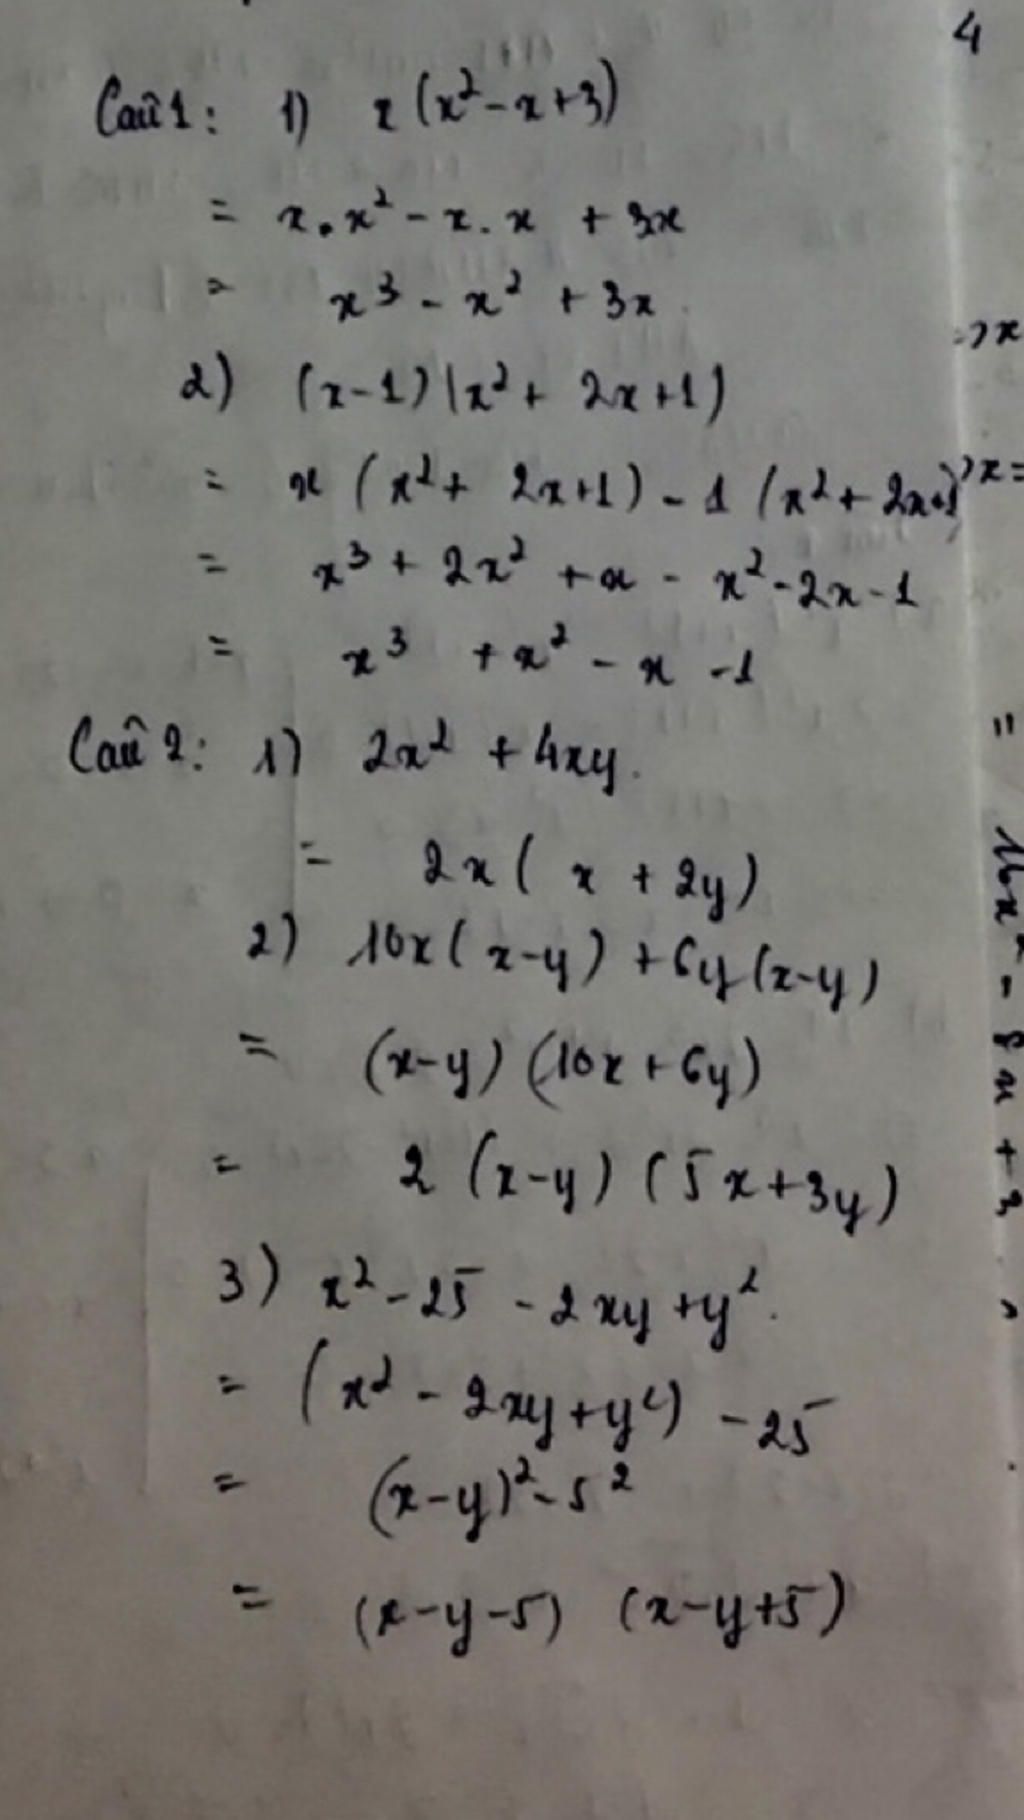 4
Câu 1: 1) x(x² - x + 3)
= x.x² - x.x + 3x
= x³ - x² + 3x
2) (x-1)(x² + 2x + 1)
= x(x² + 2x+1) - 1(x² + 2x+1)
= x³ + 2x² + x - x² - 2x - 1
= x³ + x² - x - 1
Câu 2: 1) 2x² + 4xy.
= 2x( x + 2y)
2) 10x( x-y) + 6y(x-y)
= (x-y)(10x + 6y)
= 2 (x-y) (5x+3y)
3) x² - 25 - 2xy + y².
= (x² - 2xy + y²) - 25
= (x-y)² - 5²
= (x-y-5) (x-y+5)
=>x
x=
=
16x² - 8x + 3